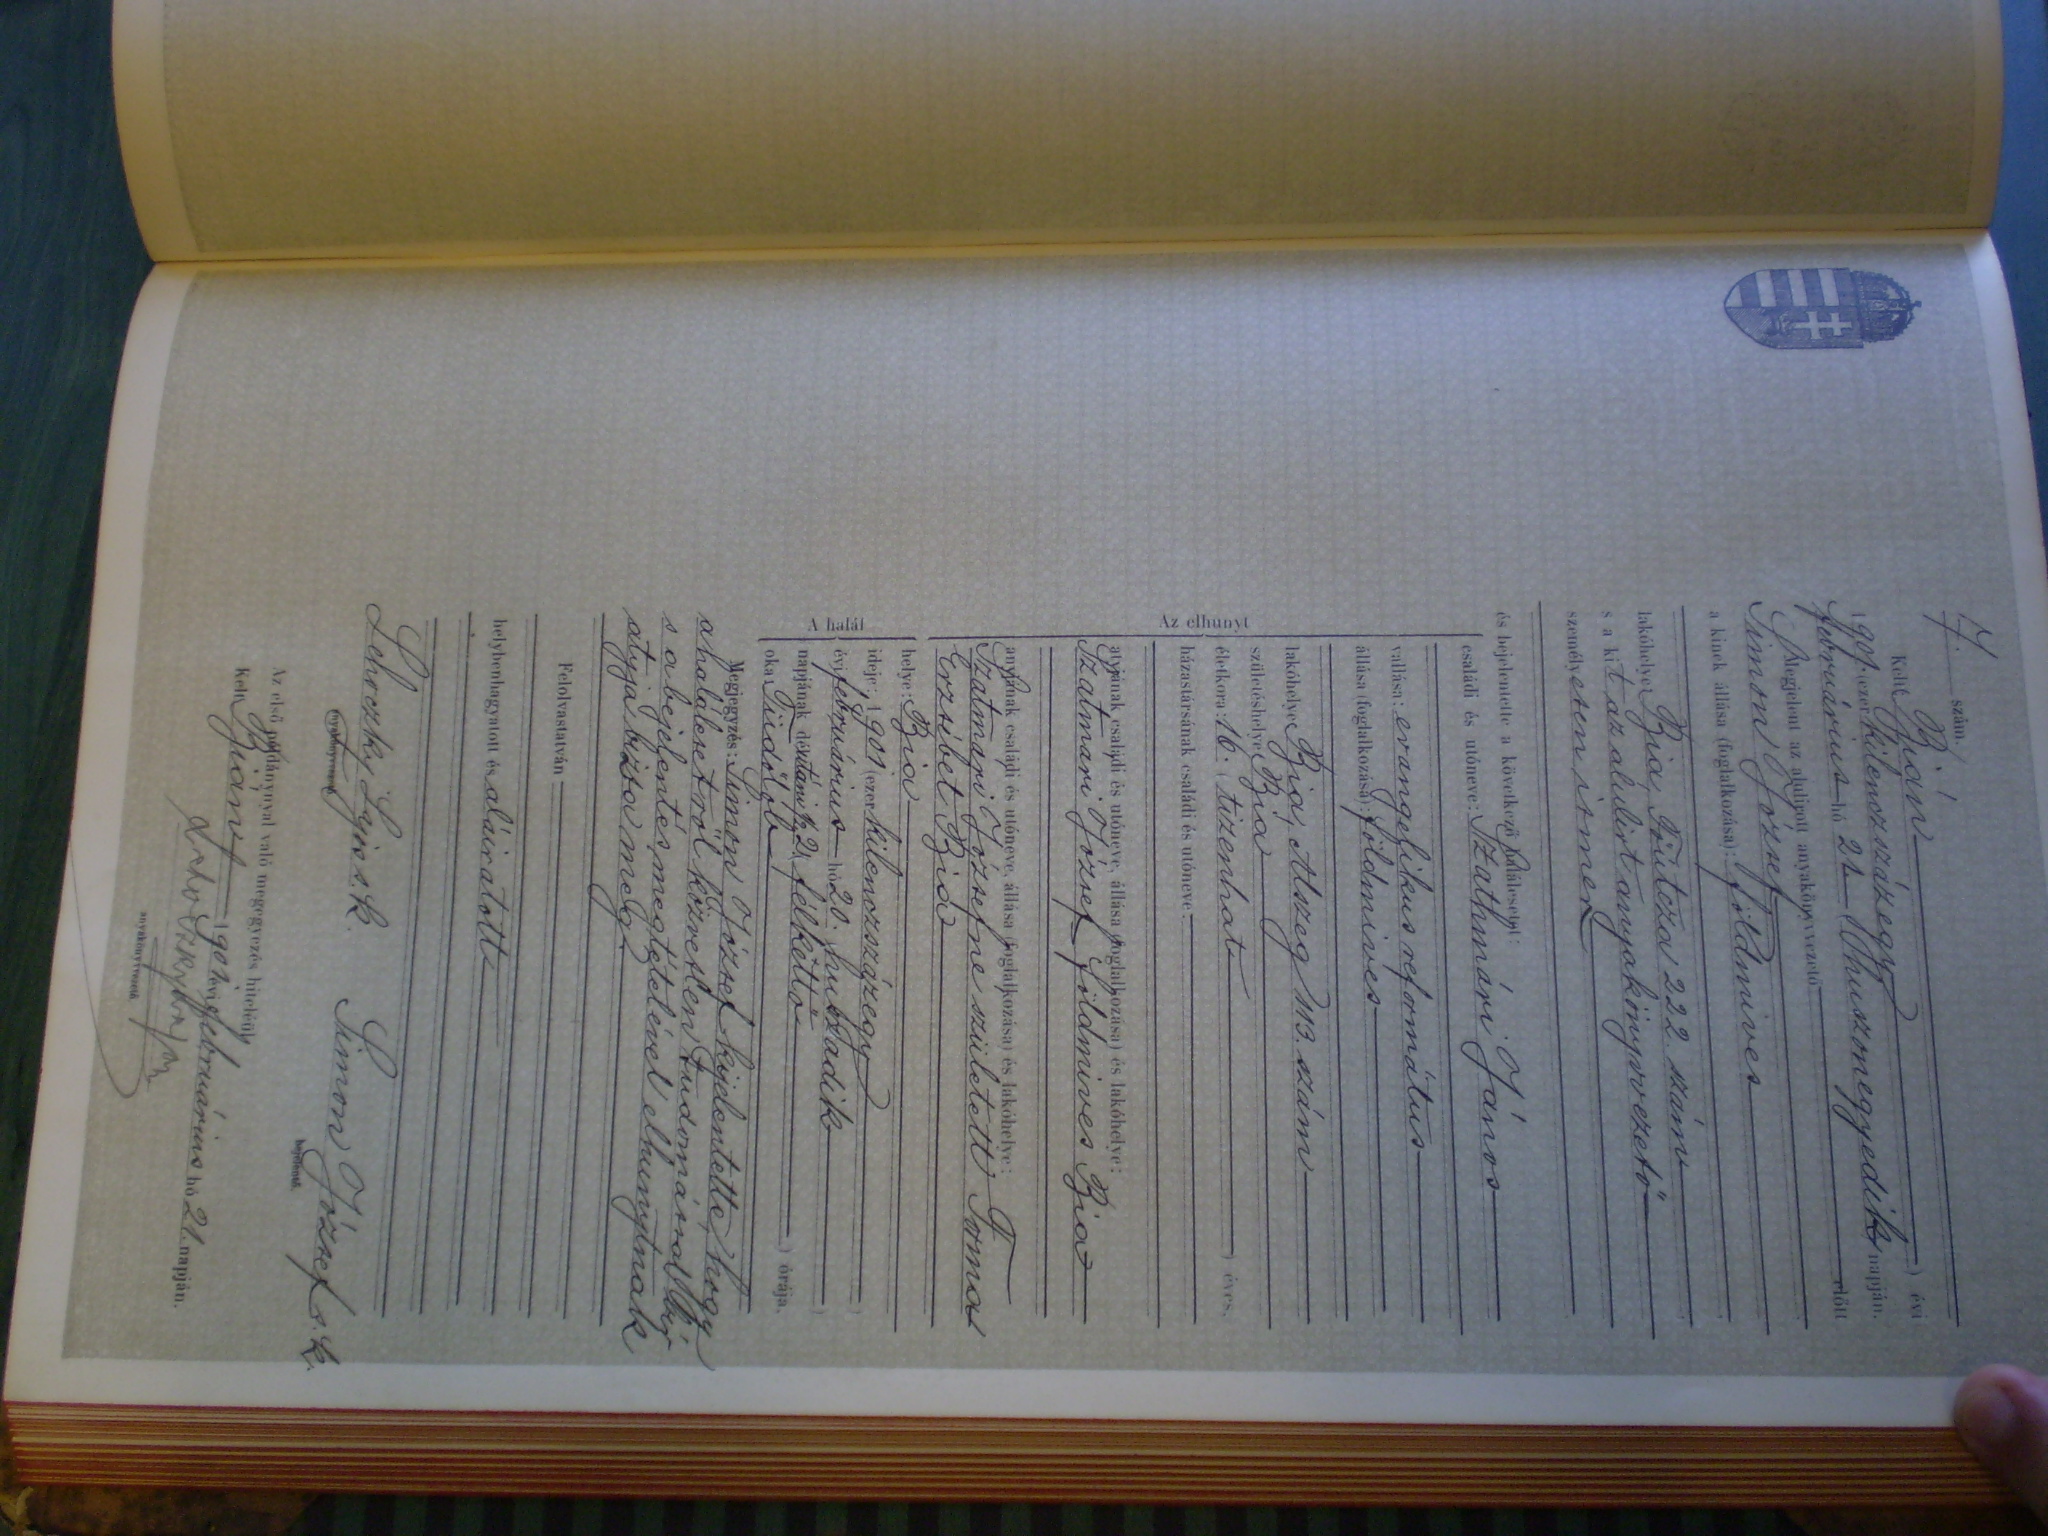 7. szám.
Kelt Bián
1901 (ezer kilenczszázegy) évi
február­ius hó 21 (huszonegyedik) napján.
Megjelent az alulirott anyakönyvvezető előtt
Simon József
a kinek állása (foglalkozása): földmives
lakóhelye: Bia, Főutcza 222. szám
s a kit az alulirt anyakönyvvezető
személyesen ismer
és bejelentette a következő halálesetet:
Az elhunyt
családi és utóneve: Szathmári János
vallása: evangelikus református
állása (foglalkozása): földmives
lakóhelye: Bia, Alszeg 113. szám
születéshelye: Bia
életkora: 16. (tizenhat) éves.
házastársának családi és utóneve:
atyjának családi és utóneve, állása (foglalkozása) és lakóhelye:
Szatmári József földmives Bia
anyjának családi és utóneve, állása (foglalkozása) és lakóhelye:
Szatmári Józsefné született Torma
Erzsébet Bia
A halál
helye: Bia
ideje: 1901 (ezer kilenczszázegy)
évi február­ius hó 20. (huszadik)
napjának délutáni ½2 (félkettő) órája.
oka: Tüdőlob
Megjegyzés: Simon József kijelentette, hogy
a halálesetről közvetlen tudomással bír
s a bejelentés megtételével elhunytnak
atyja bizta meg.
Felolvastatván
helybenhagyatott és aláiratott
Lehoczky Lajos s.k. Simon József s.k.
anyakönyvvezető. bejelentő.
Az első példánynyal való megegyezés hiteléül
Kelt Bián 1901 évi február­ius hó 21. napján.
anyakönyvvezető